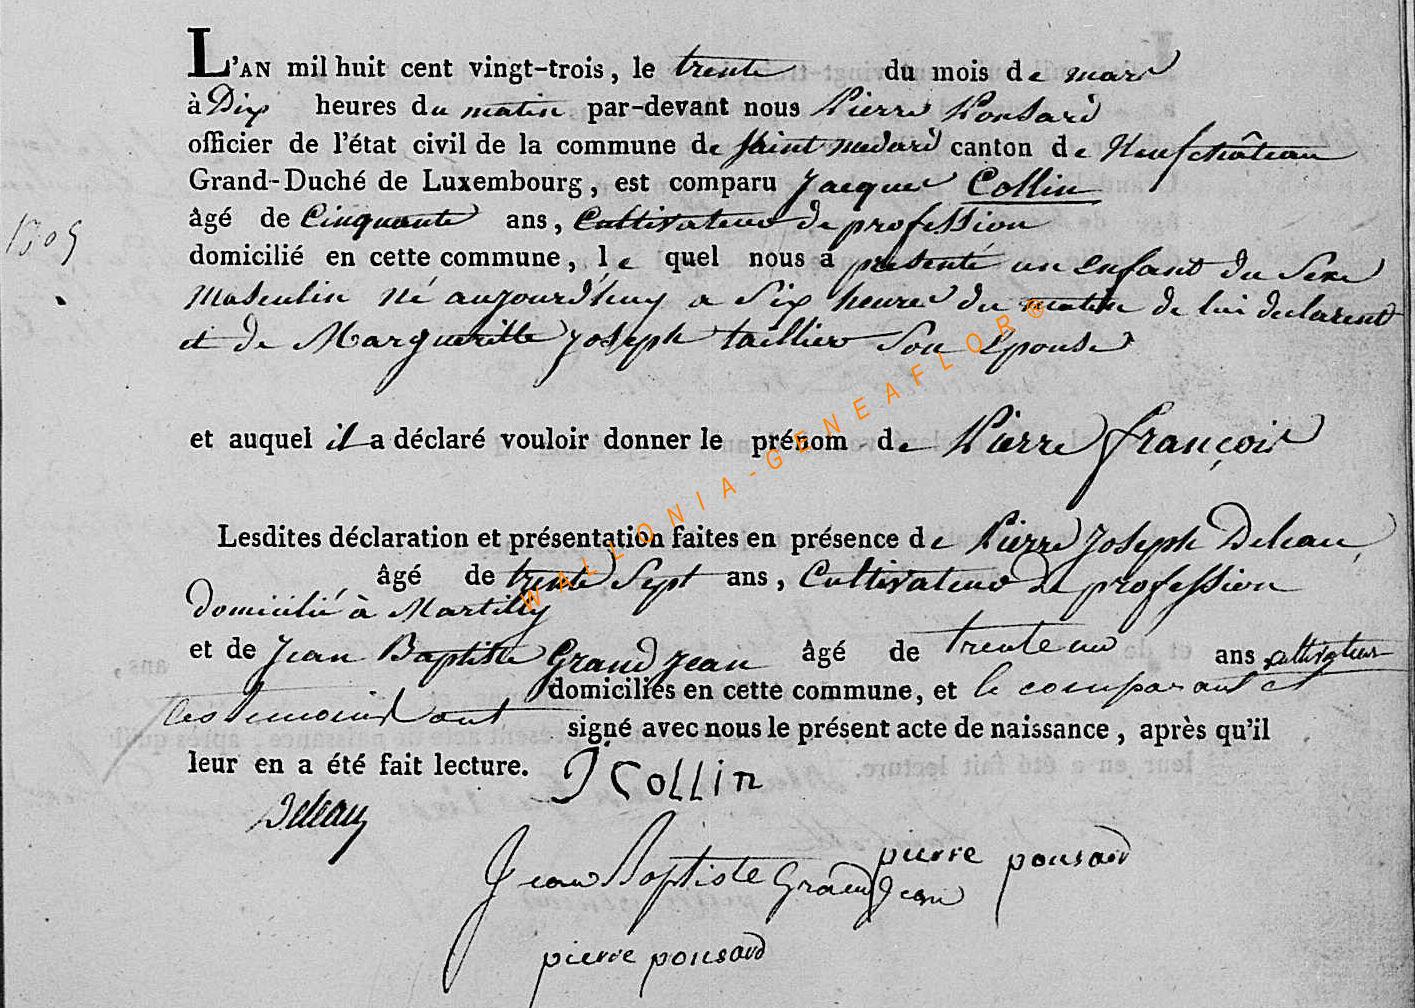 L'AN mil huit cent vingt-trois, le trente du mois de mars
à Dix heures du matin par-devant nous Pierre Ponsard
officier de l'état civil de la commune de Saint medard canton de Neufchâteau
Grand-Duché de Luxembourg, est comparu Jacques Collin
âgé de Cinquante ans, Cultivateur de profession
domicilié en cette commune, le quel nous a présenté un enfant du Sexe
Masculin né aujourd'huy a Six heures du matin de lui declarent
et de Margueritte Joseph taillier Son Epouse
et auquel il a déclaré vouloir donner le prénom de Pierre françois
Lesdites déclaration et présentation faites en présence de Pierre Joseph Deleau,
âgé de trente Sept ans, Cultivateur de profession
domicilié à Martilly
et de Jean Baptiste Grand jean âgé de trente un ans cultivateur
domiciliés en cette commune, et le comparant et
les temoins ont signé avec nous le présent acte de naissance, après qu'il
leur en a été fait lecture. J COLLIN
Deleau
pierre ponsard
Jean Baptiste Grand Jean
pierre ponsard
WALLONIA-GENEAFLOR®